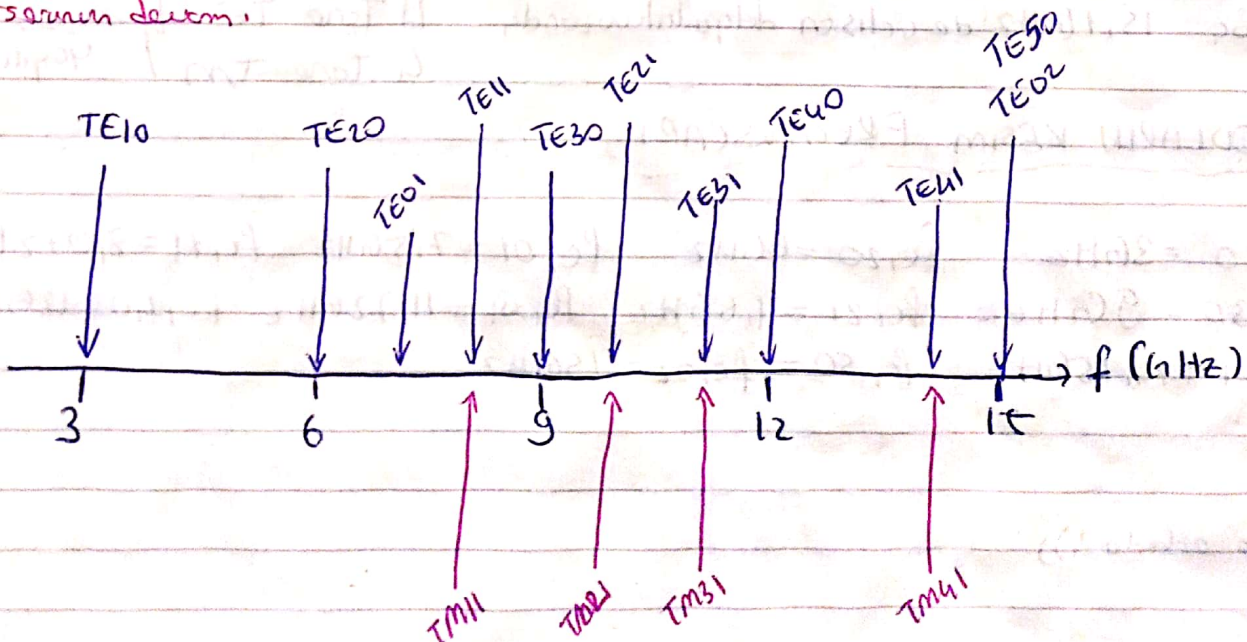 sorunun devamı.
TE10
TE20
TE01
TE11
TE30
TE21
TE31
TE40
TE41
TE50
TE02
f (GHz)
3
6
9
12
15
TM11
TM21
TM31
TM41